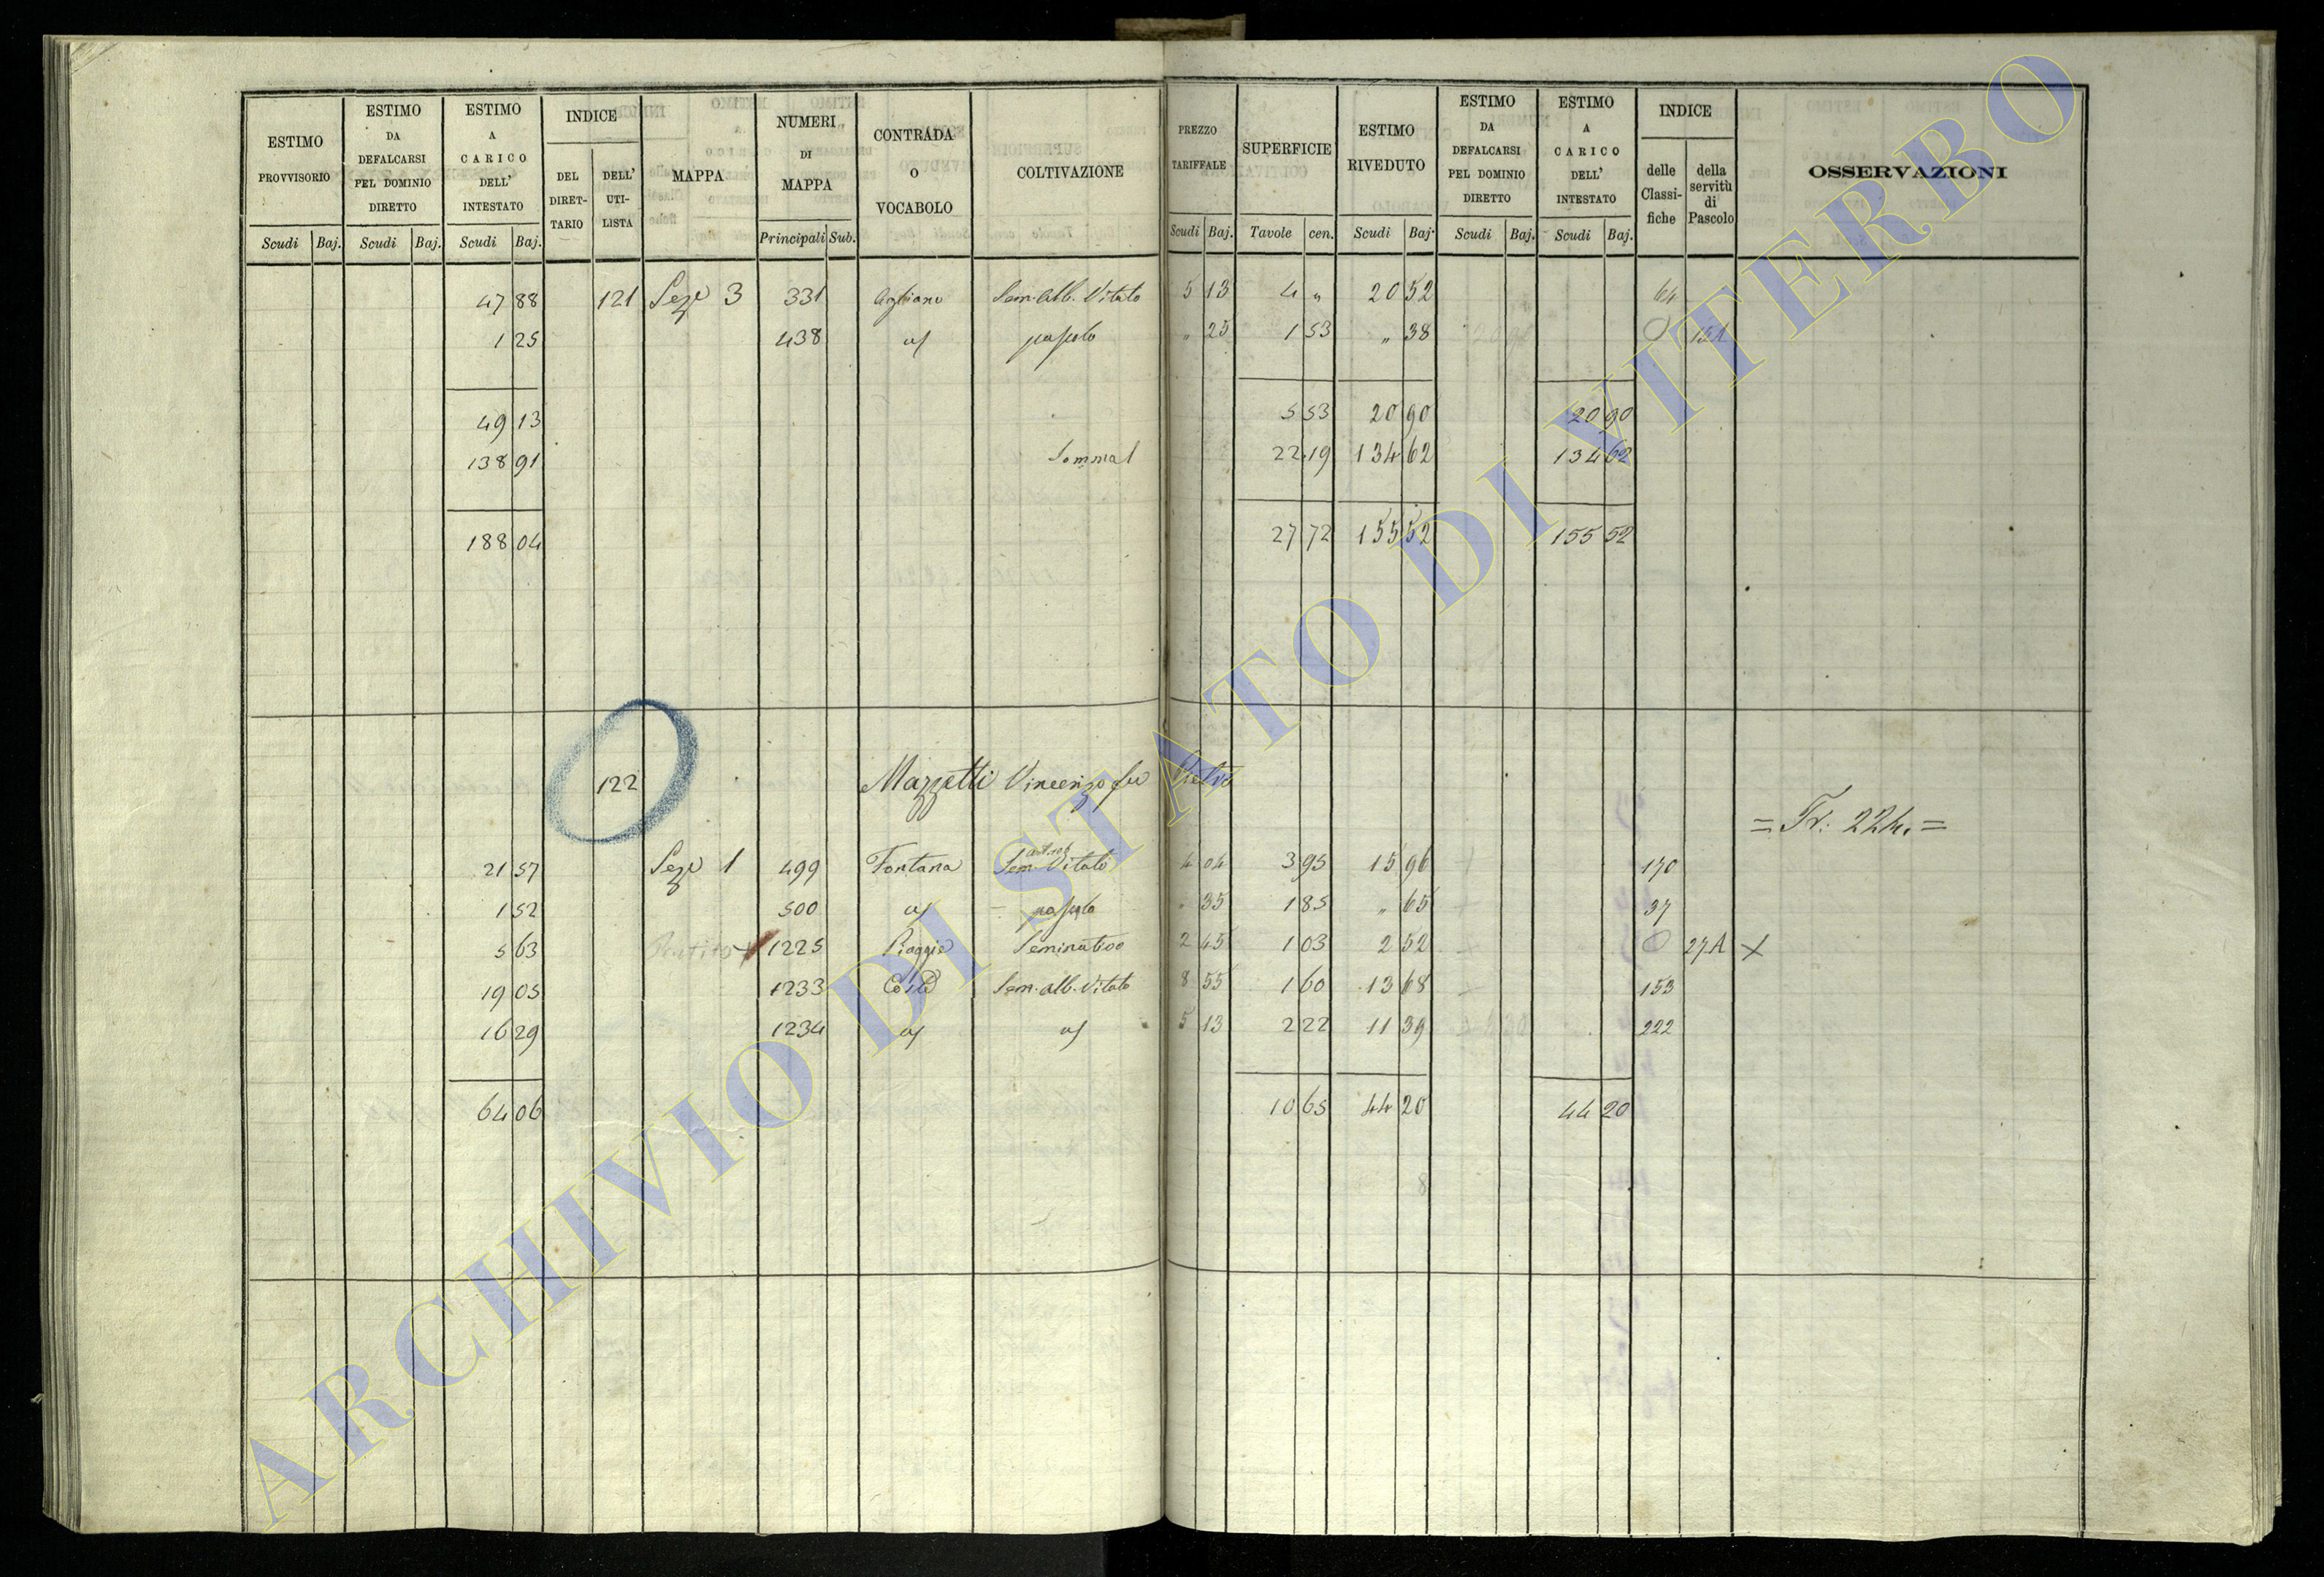 ESTIMO PROVVISORIO
Scudi Baj.
ESTIMO DA DEFALCARSI PEL DOMINIO DIRETTO
Scudi Baj.
ESTIMO A CARICO DELL' INTESTATO
Scudi Baj.
INDICE
DEL DIRET-TARIO
DELL' UTI-LISTA
MAPPA
NUMERI DI MAPPA
Principali Sub.
CONTRADA O VOCABOLO
COLTIVAZIONE
PREZZO TARIFFALE
Scudi Baj.
SUPERFICIE
Tavole cen.
ESTIMO RIVEDUTO
Scudi Baj.
ESTIMO DA DEFALCARSI PEL DOMINIO DIRETTO
Scudi Baj.
ESTIMO A CARICO DELL' INTESTATO
Scudi Baj.
INDICE
delle Classi-fiche
della servitù di Pascolo
OSSERVAZIONI
47 88 121 Seze 3 331 Agliano Sem. Alb. Vitato 5 13 4 „ 20 52 64
1 25 438 pascolo „ 25 1 53 „ 38 0
49 13 5 53 20 90 20 90
138 91 Somma 22 19 134 62 134 62
188 04 27 72 155 52 155 52
122 Mazzetti Vincenzo fu
= Tr: 224. =
21 57 Seze 1 499 Fontana Sem. Vitato 4 04 3 95 15 96 170
1 52 500 pascolo „ 35 1 85 „ 65 37
5 63 1225 Piaggie Seminativo 2 45 1 03 2 52 0 27A X
19 05 1233 Coste Sem. Alb. Vitato 8 55 1 60 13 68 153
16 29 1234 5 13 2 22 11 39 222
64 06 10 65 44 20 44 20
8
ARCHIVIO DI STATO DI VITERBO